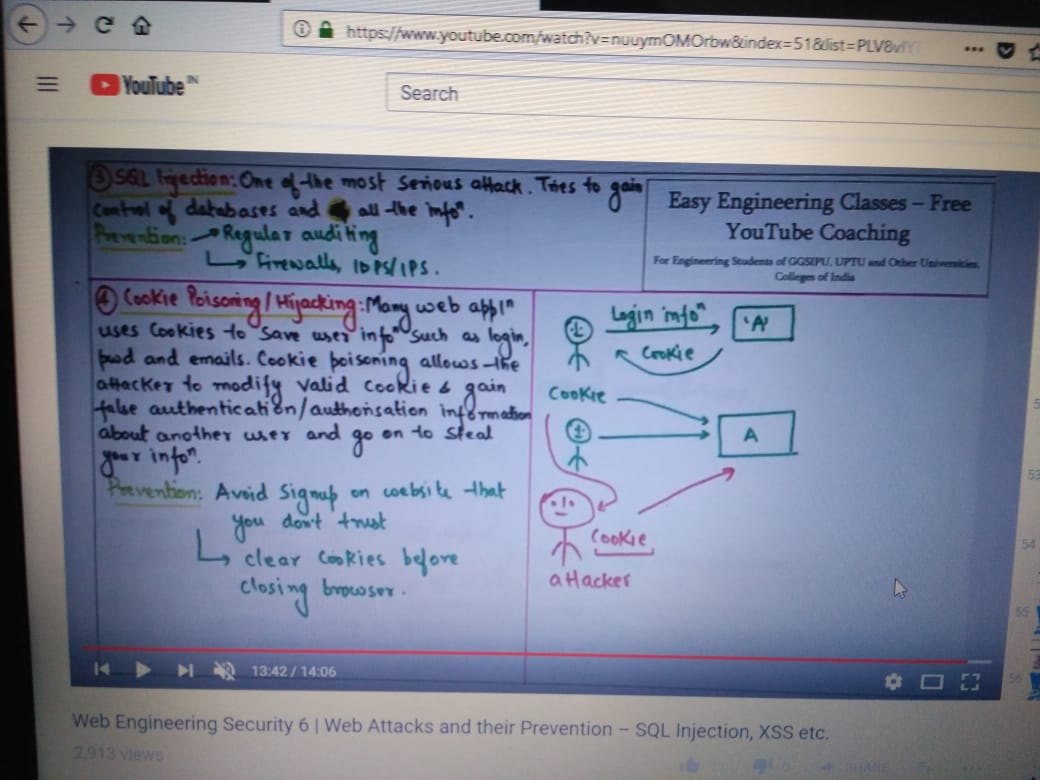 https://www.youtube.com/watch?v=nuuymOMOrbw&index=51&list=PLV8vIY
YouTube IN
Search
③ SQL Injection: One of the most serious attack. Tries to gain
control of databases and all the infoⁿ.
Prevention: → Regular auditing
↳ Firewalls, IDPS/IPS.
Easy Engineering Classes – Free
YouTube Coaching
For Engineering Students of GGSIPU, UPTU and Other Universities,
Colleges of India
④ Cookie Poisoning/Hijacking: Many web applⁿ
uses Cookies to save user infoⁿ such as login,
pwd and emails. Cookie poisoning allows the
attacker to modify valid cookie & gain
false authentication/authorisation information
about another user and go on to steal
your infoⁿ.
Prevention: Avoid Signup on website that
you don't trust
↳ clear cookies before
closing browser.
Login infoⁿ
'A'
Cookie
Cookie
A
Cookie
attacker
13:42 / 14:06
Web Engineering Security 6 | Web Attacks and their Prevention – SQL Injection, XSS etc.
2,913 views
SHARE
53
54
55
56